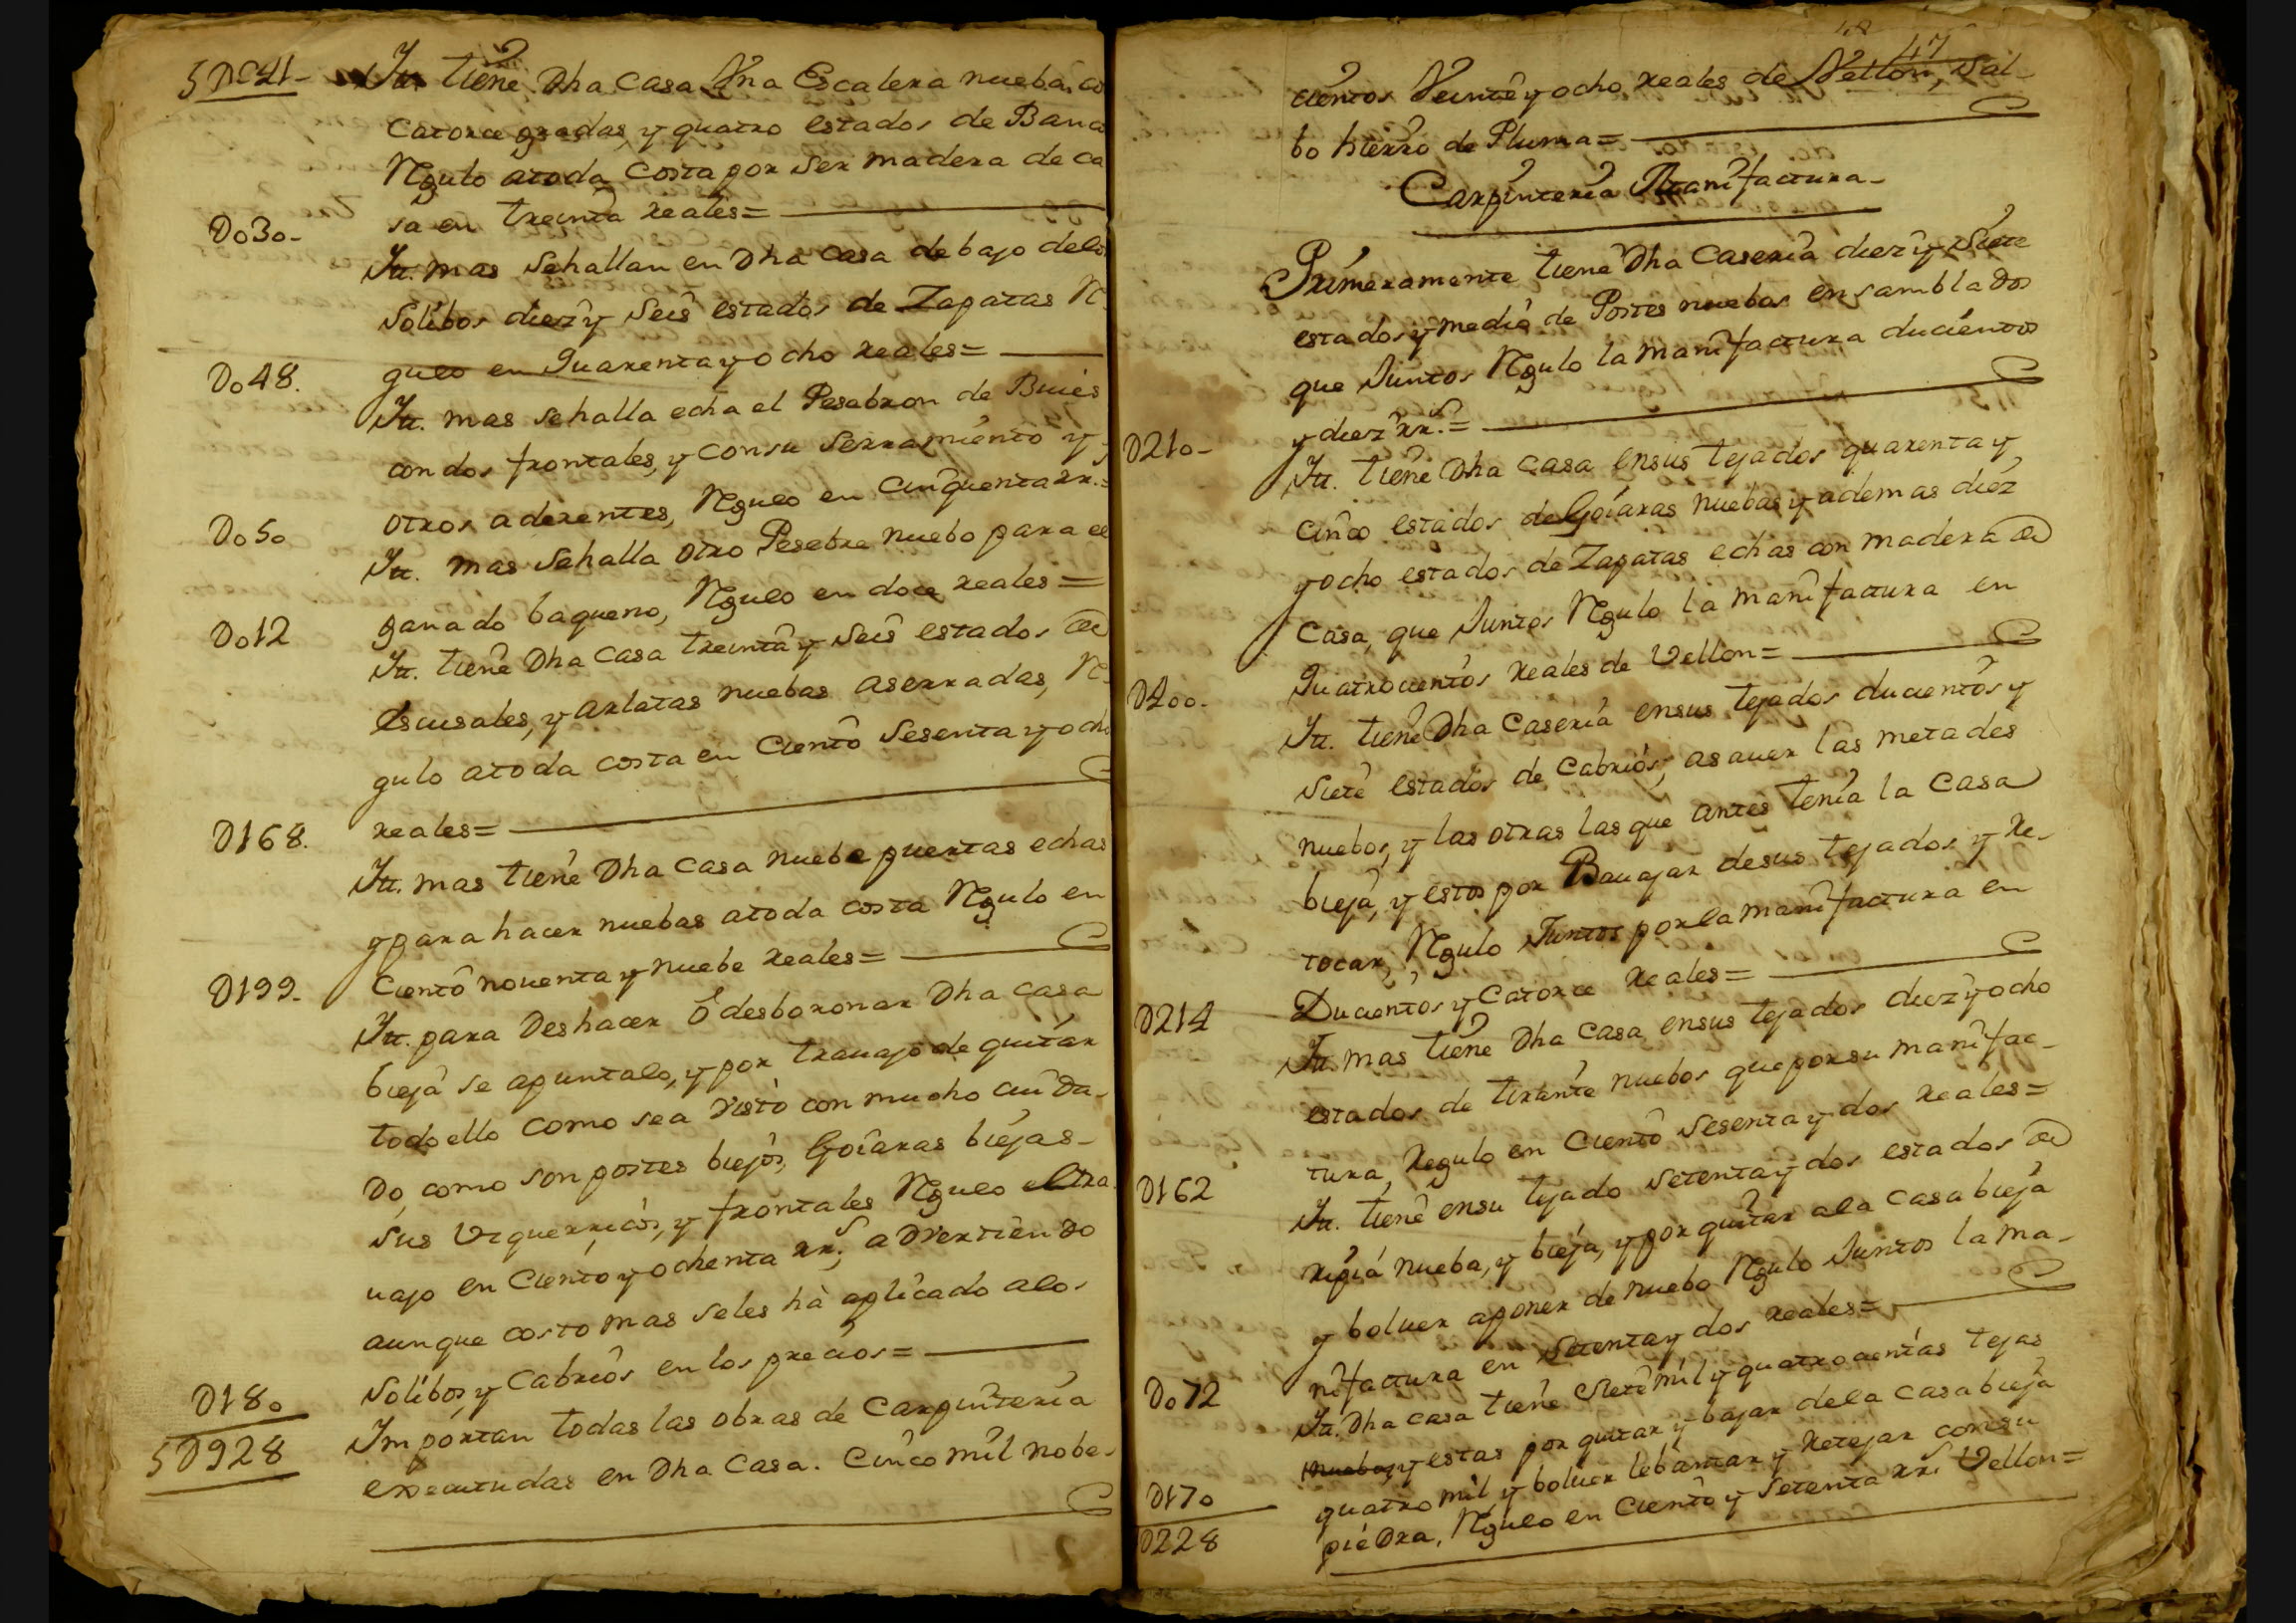 5D241- Itt tiene Dha Casa Vna Escalera nueba, co
Catorce gradas, y quatro estados de Banc
Rgulo atoda Costa por ser madera de ca
D030- sa en treinta reales=
Itt. mas sehallan en Dha casa debajo delos
Solibos diez y seis estados de Zapatas R.
D048. gulo en Quarenta y ocho reales=
Itt. mas sehalla echa el Pesebron de Buies
con dos frontales, y consu serramiento y
D050 otros aderentes, Rgulo en cinquenta rr.=
Itt. mas sehalla otro Pesebre nuebo para el
D012 ganado baqueno, Rgulo en doce reales=
Itt. tiene Dha casa treinta y seis estados de
escusales, y arlatas nuebas aserradas, R.
gulo atoda costa en Ciento sesenta y ocho
D168. reales=
Itt. mas tiene Dha casa nuebe puertas echas
y para hacer nuebas atoda costa Rgulo en
D199- Ciento noventa y nuebe reales=
Itt. para Deshacer ó desboronar Dha casa
bieja se apuntalo, y por trauajo de quitar
todo ello como sea visto con mucho cuida-
do, como son postes biejos, Goiaras biejas-
sus viguerrios, y frontales Rgulo eltra
uajo en Ciento y ochenta rr.s, advertiendo
aunque costo mas seles hà aplicado alos
D180 Solibos, y Cabrios en los precios=
5D928 Importan todas las obras de Carpinteria
executudas en Dha Casa. Cinco mil nobe-
47
cientos Veinte y ocho reales de Vellon, sal-
bo hierro de Pluma=
Carpinteria Manifactura-
Primeramente tiene Dha Caseria diez y siete
estados y medio de Postes nuebos ensamblados
que Juntos Rgulo la manifactura ducientos
D210- y diez rr.s=
Itt. tiene Dha casa ensus tejados quarenta y
cinco estados de Goiaras nuebas y ademas diez
y ocho estados de Zapatas echas con madera de
Casa, que Juntos Rgulo la manifactura en
D400. Quatrocientos reales de Vellon=
Itt. tiene Dha Caseria ensus tejados ducientos y
siete estados de Cabrios, asauer las metades
nuebos, y las otras las que antes tenia la Casa
bieja, y estos por Bauajar desus tejados y re-
tocar, Rgulo Juntos por la manifactura en
D214 Ducientos y Catorce reales=
Itt. mas tiene Dha casa ensus tejados diez y ocho
estados de tirante nuebos que por su manifac-
D162 tura, Regulo en Ciento sesenta y dos reales=
Itt. tiene ensu tejado setenta y dos estados de
ripia nueba, y bieja, y por quitar ala casa bieja
y boluer aponer de nuebo Rgulo Juntos la ma-
D072 nifactura en setenta y dos reales=
Itt. Dha casa tiene siete mil y quatrocientas tejas
nuebas, y estas por quitar y bajar dela casa bieja
D170 quatro mil y boluer lebantar y retejar consu
D228 piedra, Rgulo en Ciento y setenta rr.s Vellon=